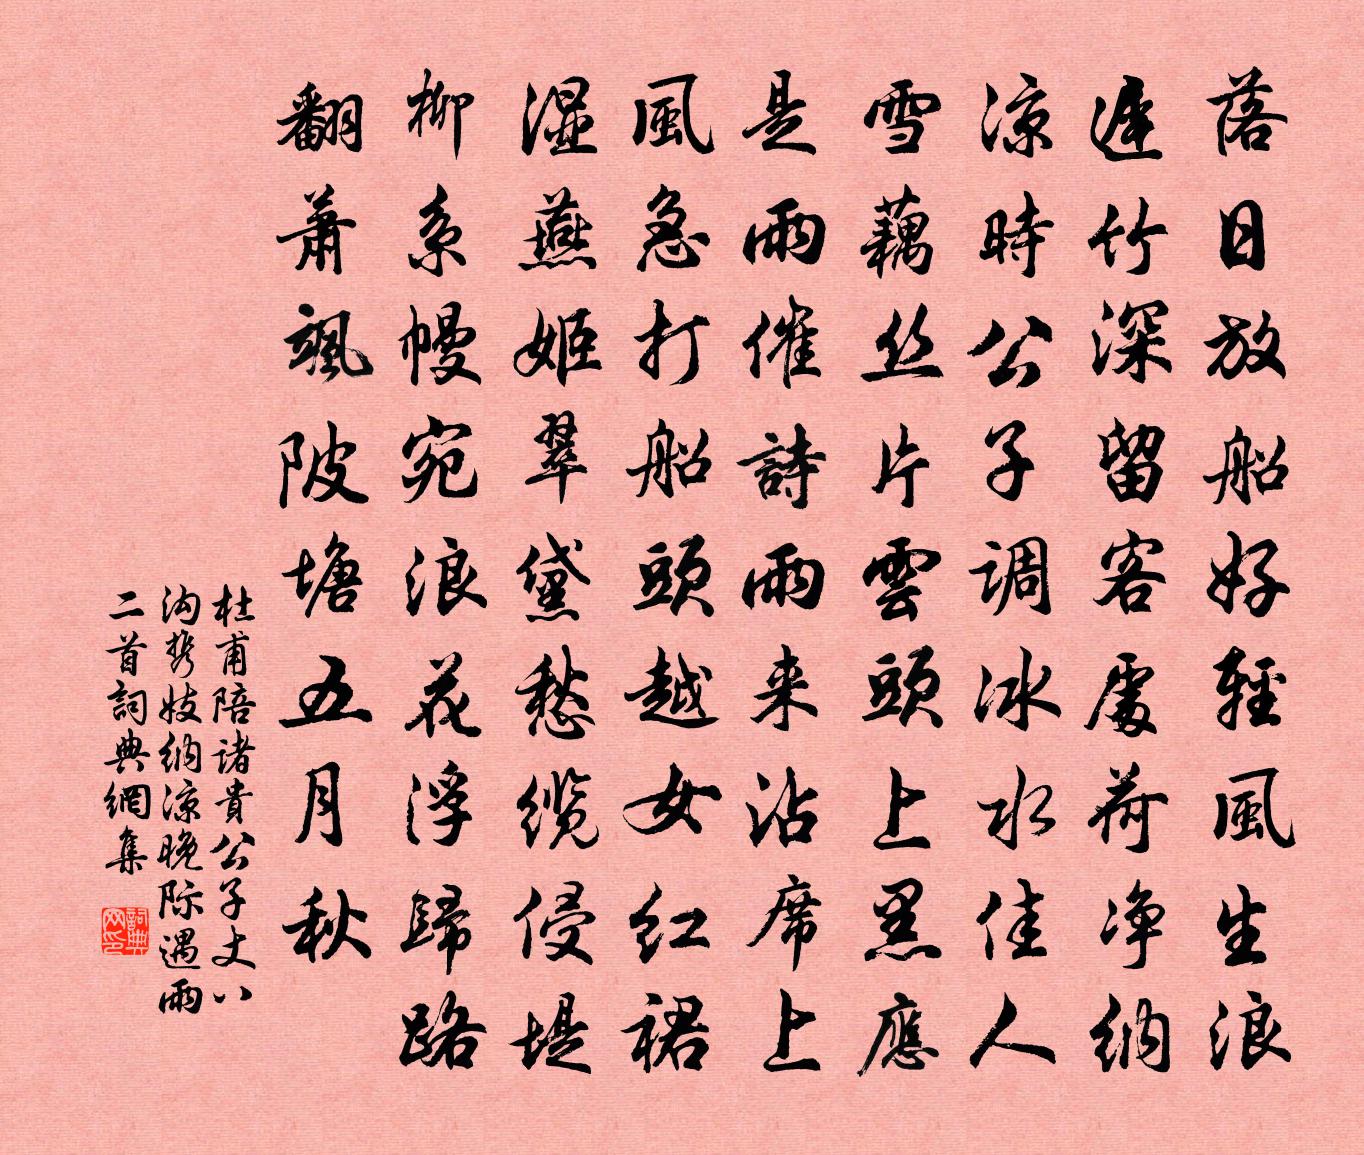 落日放船好輕風生浪
遲竹深留客處荷净納
涼時公子調冰水佳人
雪藕丝片雲頭上黑應
是雨催詩雨来沾席上
風急打船頭越女红裙
湿燕姬翠黛愁缆侵堤
柳系幔宛浪花浮歸路
翻蕭颯陂塘五月秋
杜甫陪诸貴公子丈八
沟携妓纳凉晚际遇雨
二首詞典網集
詞典
网印